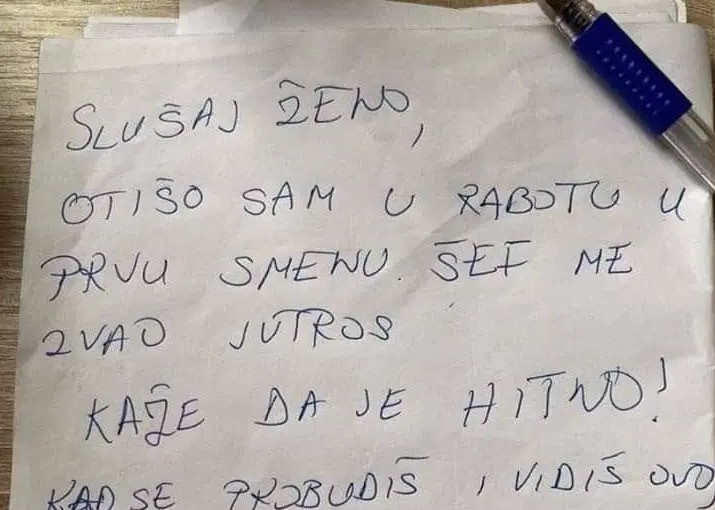 SLUŠAJ ŽENO,
OTIŠO SAM U RABOTU U
PRVU SMENU. ŠEF ME
ZVAO JUTROS
KAŽE DA JE HITNO!
KAD SE PROBUDIŠ I VIDIŠ OVO,